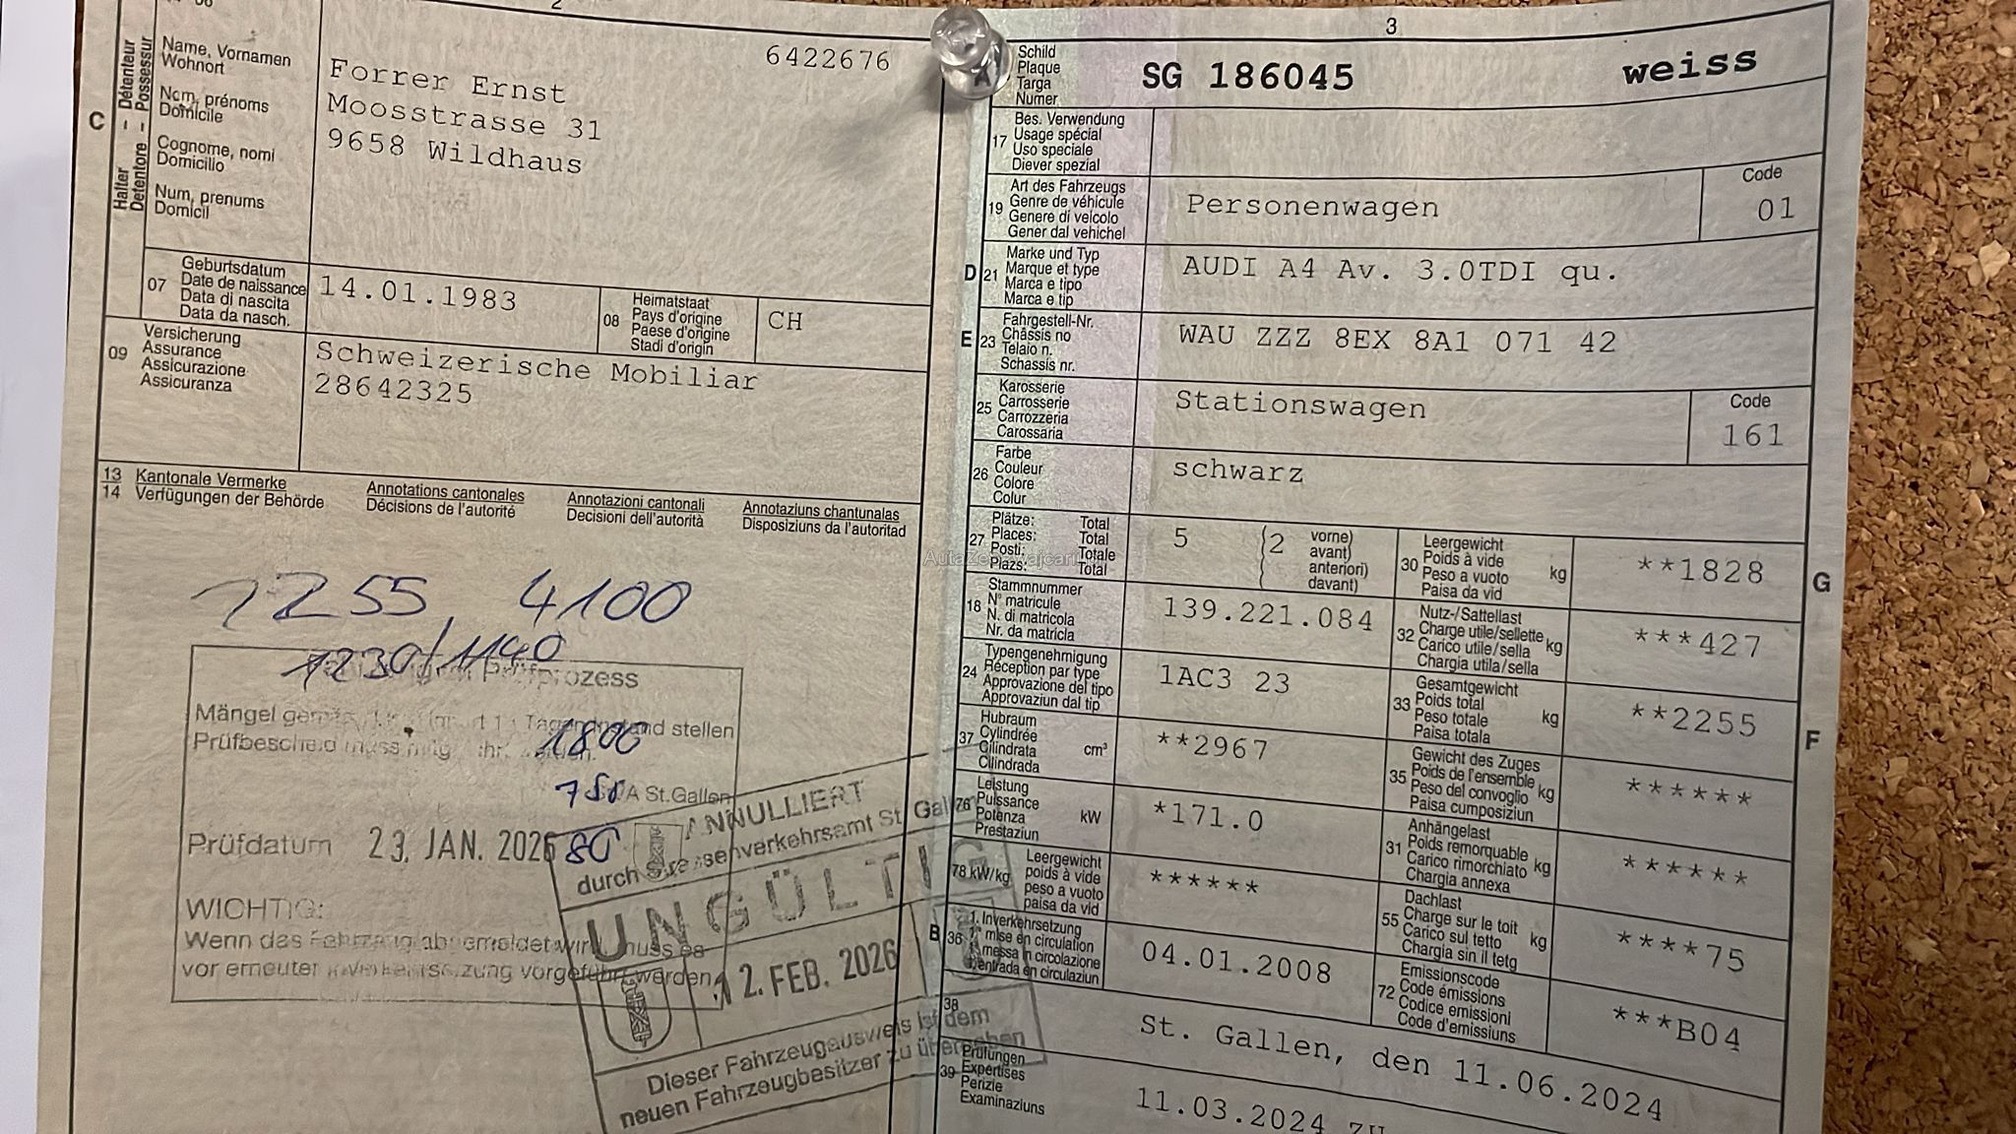 2
C
Halter - Détenteur
Detentore - Possessur
Name, Vornamen
Wohnort
Nom, prénoms
Domicile
Cognome, nomi
Domicilio
Num, prenums
Domicil
6422676
Forrer Ernst
Moosstrasse 31
9658 Wildhaus
07
Geburtsdatum
Date de naissance
Data di nascita
Data da nasch.
14.01.1983
08
Heimatstaat
Pays d'origine
Paese d'origine
Stadi d'origin
CH
09
Versicherung
Assurance
Assicurazione
Assicuranza
Schweizerische Mobiliar
28642325
13 Kantonale Vermerke Annotations cantonales Annotazioni cantonali Annotaziuns chantunalas
14 Verfügungen der Behörde Décisions de l'autorité Decisioni dell'autorità Disposiziuns da l'autoritad
1255, 4100
1230/1140
Prüfprozess
Mängel stellen
Prüfbescheid muss
1800
750
St.Gallen
80
Prüfdatum 23. JAN. 2026
WICHTIG:
Wenn das Fahrzeug abgemeldet wird, muss es
vor erneuter Inverkehrsetzung vorgeführt werden
ANNULLIERT
durch Strassenverkehrsamt St. Gallen
UNGÜLTIG
12. FEB. 2026
Dieser Fahrzeugausweis ist dem
neuen Fahrzeugbesitzer zu übergeben
3
A
Schild
Plaque
Targa
Numer
SG 186045 weiss
17
Bes. Verwendung
Usage spécial
Uso speciale
Diever spezial
19
Art des Fahrzeugs
Genre de véhicule
Genere di veicolo
Gener dal vehichel
Personenwagen
Code
01
D 21
Marke und Typ
Marque et type
Marca e tipo
Marca e tip
AUDI A4 Av. 3.0TDI qu.
E 23
Fahrgestell-Nr.
Châssis no
Telaio n.
Schassis nr.
WAU ZZZ 8EX 8A1 071 42
25
Karosserie
Carrosserie
Carrozzeria
Carossaria
Stationswagen
Code
161
26
Farbe
Couleur
Colore
Colur
schwarz
27
Plätze: Total
Places: Total
Posti: Totale
Plazs: Total
5 (2 vorne)
avant)
anteriori)
davant)
30
Leergewicht
Poids à vide
Peso a vuoto
Paisa da vid
kg
**1828
G
18
Stammnummer
N° matricule
N. di matricola
Nr. da matricla
139.221.084
32
Nutz-/Sattellast
Charge utile/sellette
Carico utile/sella
Chargia utila/sella
kg
***427
24
Typengenehmigung
Réception par type
Approvazione del tipo
Approvaziun dal tip
1AC3 23
33
Gesamtgewicht
Poids total
Peso totale
Paisa totala
kg
**2255
F
37
Hubraum
Cylindrée
Cilindrata
Cilindrada
cm³
**2967
35
Gewicht des Zuges
Poids de l'ensemble
Peso del convoglio
Paisa cumposiziun
kg
******
76
Leistung
Puissance
Potenza
Prestaziun
kW
*171.0
31
Anhängelast
Poids remorquable
Carico rimorchiato
Chargia annexa
kg
******
78 kW/kg
Leergewicht
poids à vide
peso a vuoto
paisa da vid
******
55
Dachlast
Charge sur le toit
Carico sul tetto
Chargia sin il tetg
kg
****75
B 36
1. Inverkehrsetzung
1re mise en circulation
messa in circolazione
entrada en circulaziun
04.01.2008
72
Emissionscode
Code émissions
Codice emissioni
Code d'emissiuns
***B04
38
St. Gallen, den 11.06.2024
39
Prüfungen
Expertises
Perizie
Examinaziuns
11.03.2024